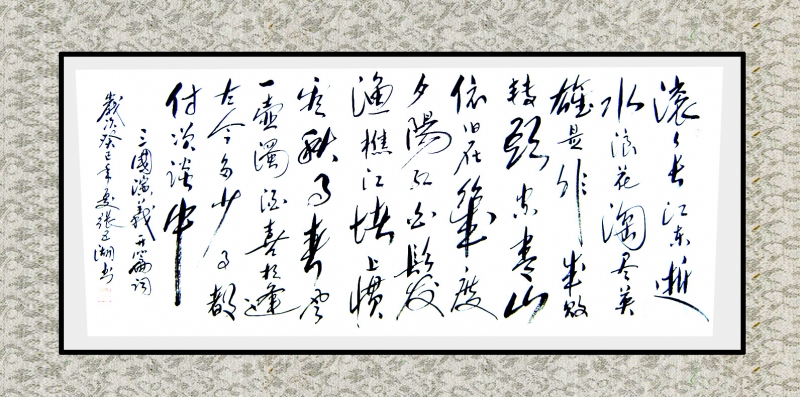 滚滚长江东逝
水浪花淘尽英
雄是非成败
转頭空青山
依旧在幾度
夕陽红白髮
漁樵江渚上惯
看秋月春风
一壶濁酒喜相逢
古今多少事都
付笑谈中
三國演義开篇词
歲次癸巳年夏張玉湖书